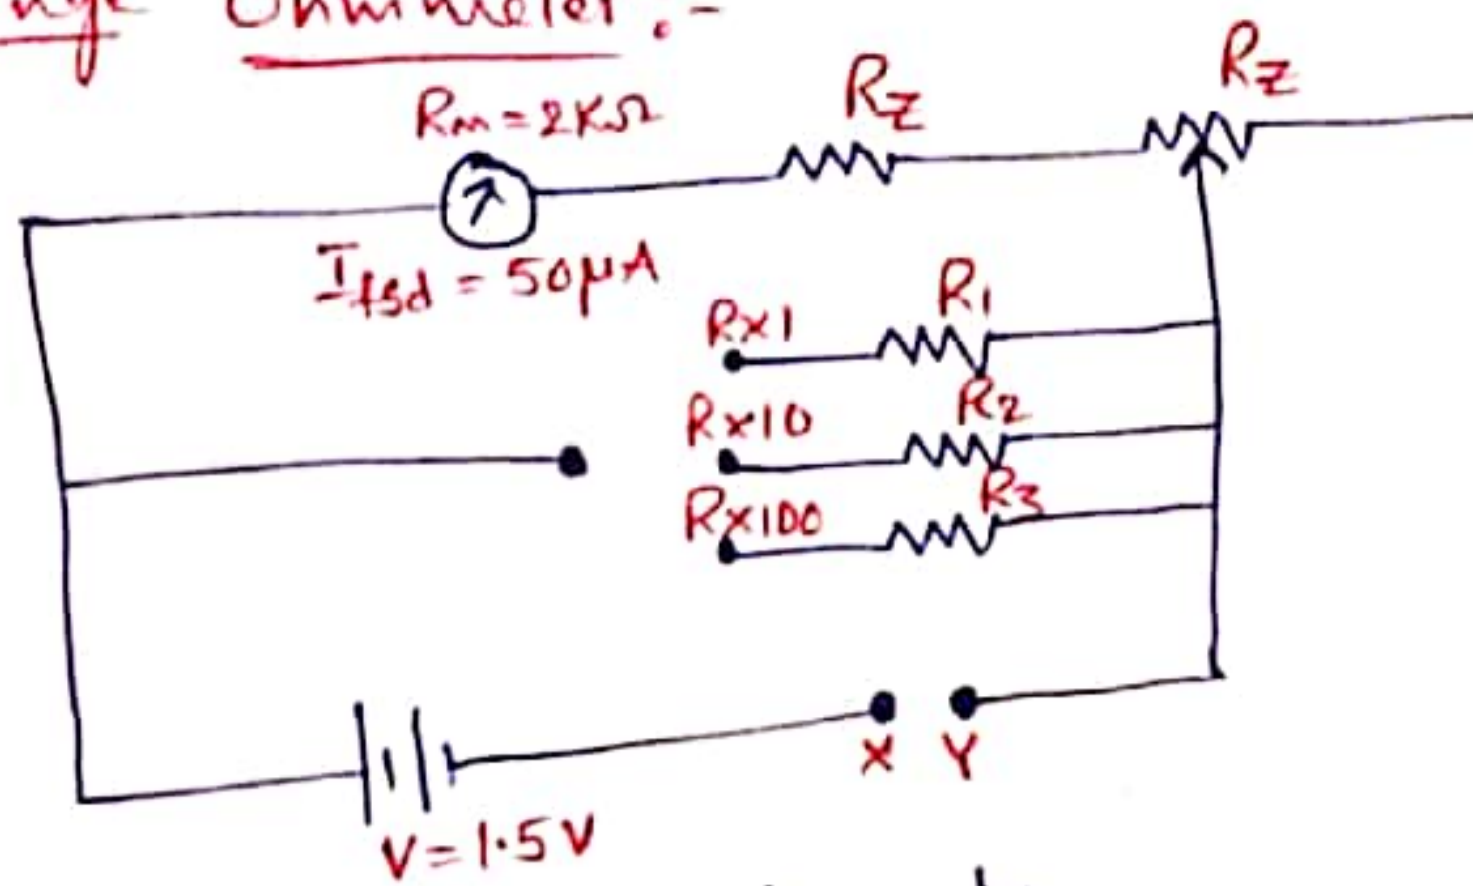 Ohmmeter :-
Rm = 2KΩ
Rz
Rz
Ifsd = 50μA
Rx1
R1
Rx10
R2
Rx100
R3
X Y
V = 1.5V